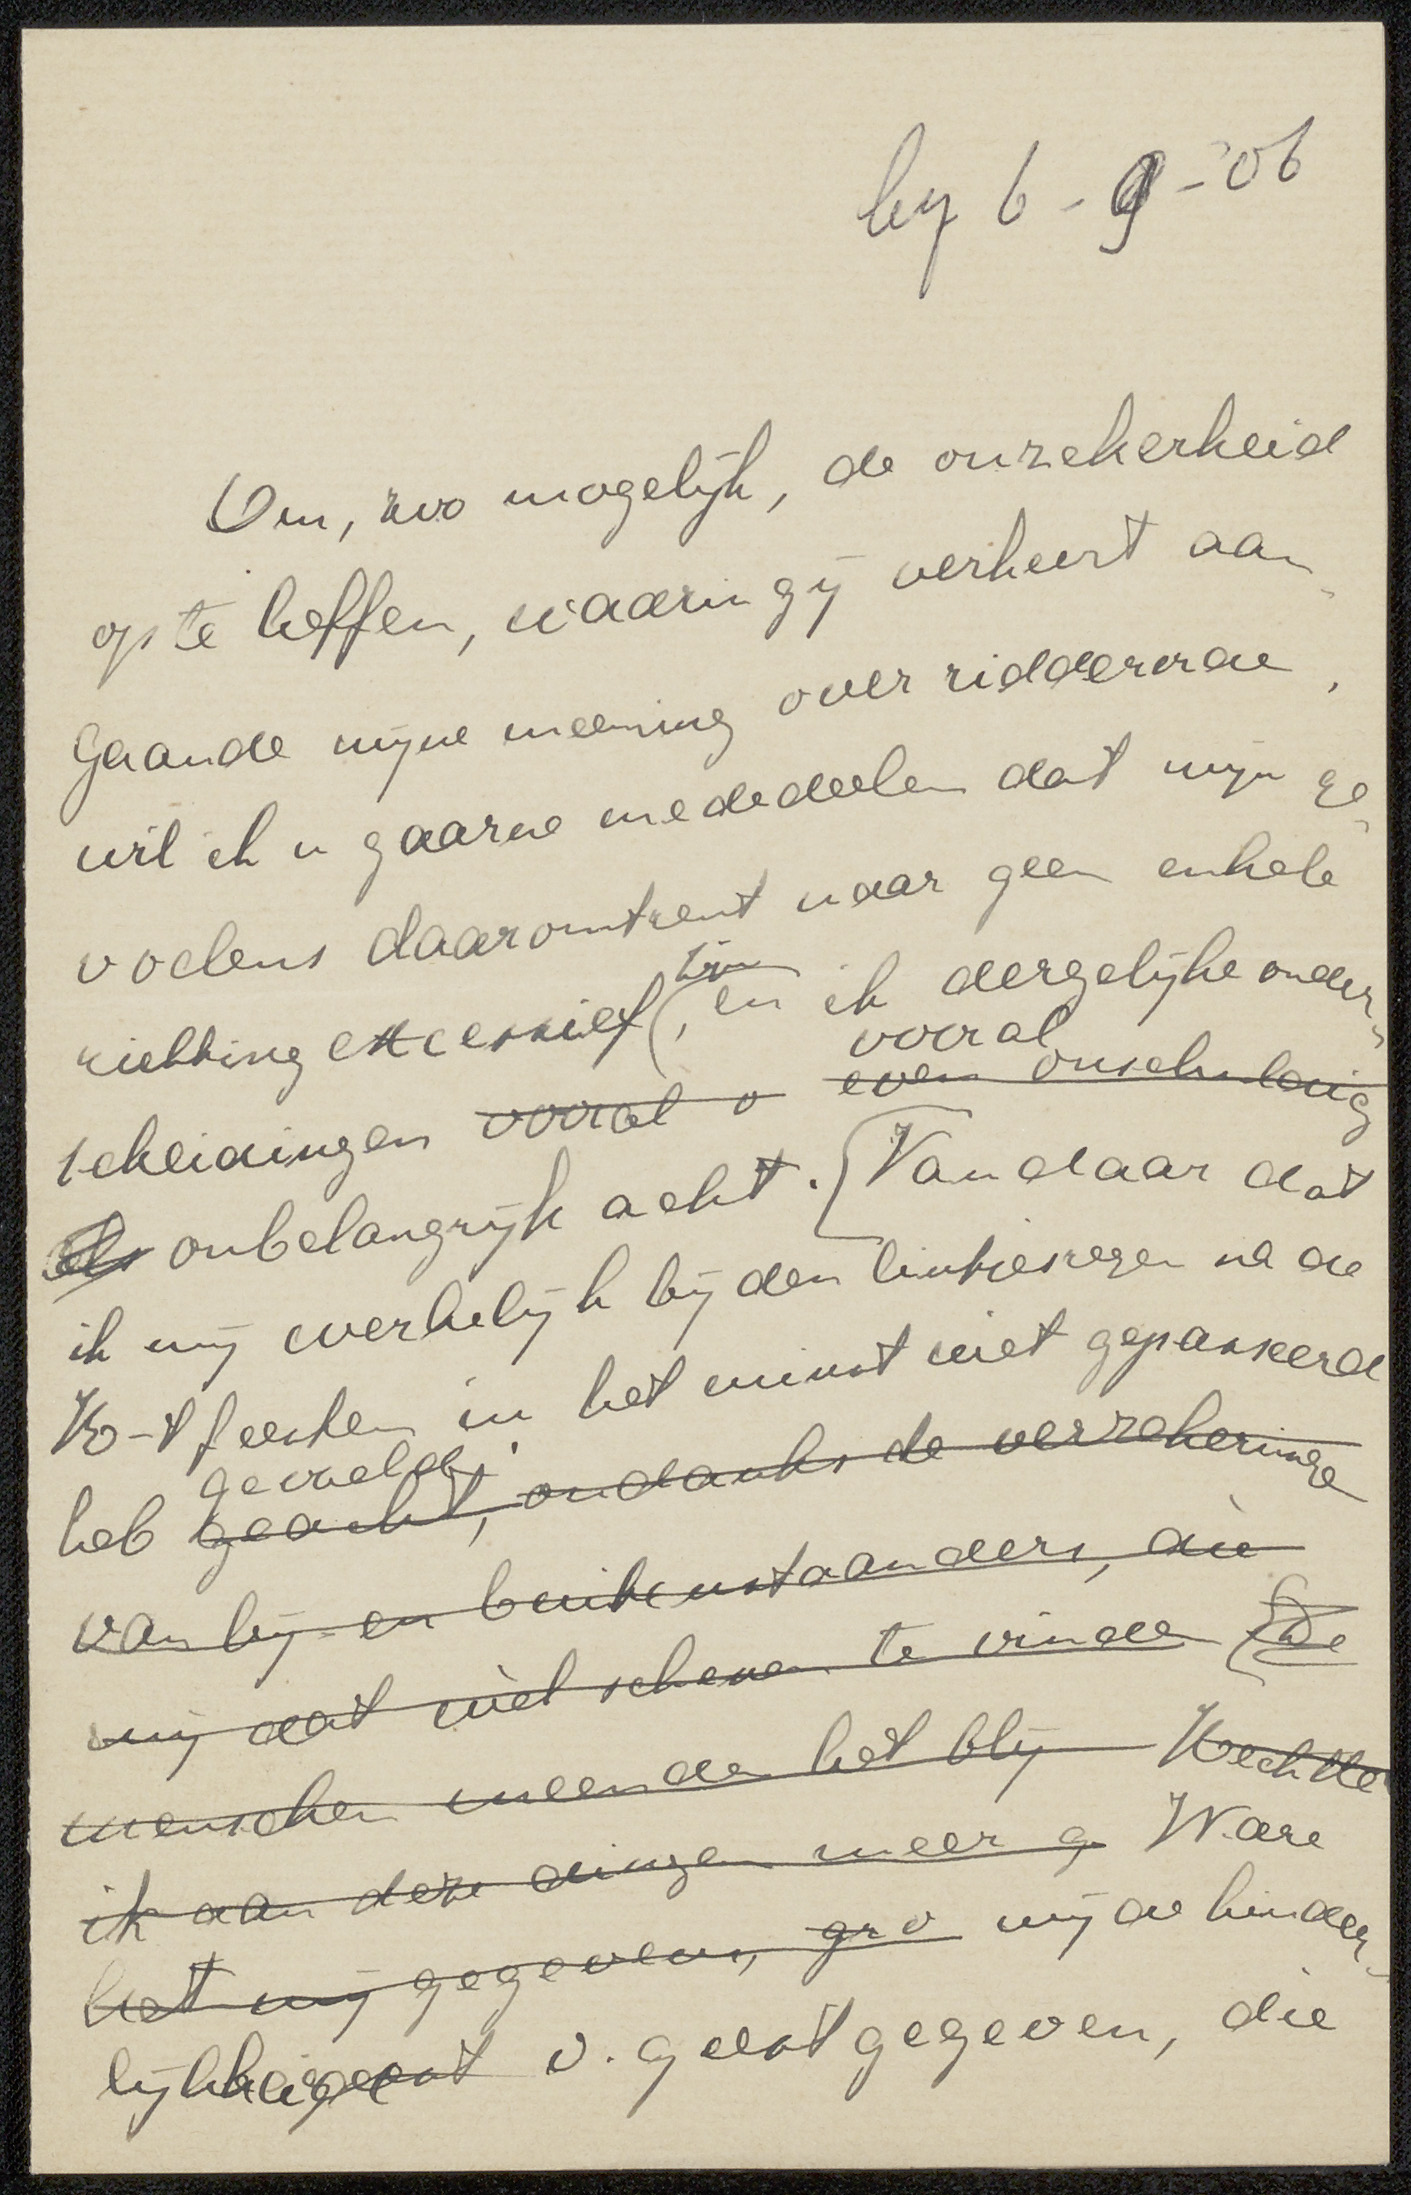 by 6-9-'06
Om, zoo mogelijk, de onzekerheid
op te heffen, waarin gij verkeert aan-
gaande mijne meening over ridderorde,
wil ik u gaarne mededeelen dat mijn ge-
voelens daaromtrent naar geen enkele
zijn
richting excessief, en ik dergelijke onder-
vooral
scheidingen vooral o even onschuldig
als onbelangrijk acht. Vandaar dat
ik mij werkelijk bij den lintjesregen na de
R-t feesten in het minst niet gepasseerd
gevoeld.
heb geacht, ondanks de verzekeringe
van bij- en buitenstaanders, die
mij dat niet schenen te vinden De
menschen meenden het blij Hechtte
ik aan deze dingen meer g Ware
het mij gegeven, gro mij de kinder-
lijkheid v. geest gegeven, die